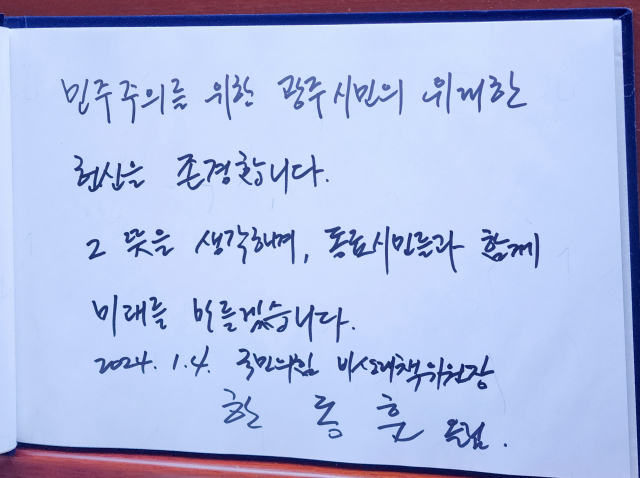 민주주의를 위한 광주시민의 위대한
헌신을 존경합니다.
그 뜻을 생각하며, 동료시민들과 함께
미래를 만들겠습니다.
2024. 1. 4. 국민의힘 비상대책위원장
한 동 훈 올림.